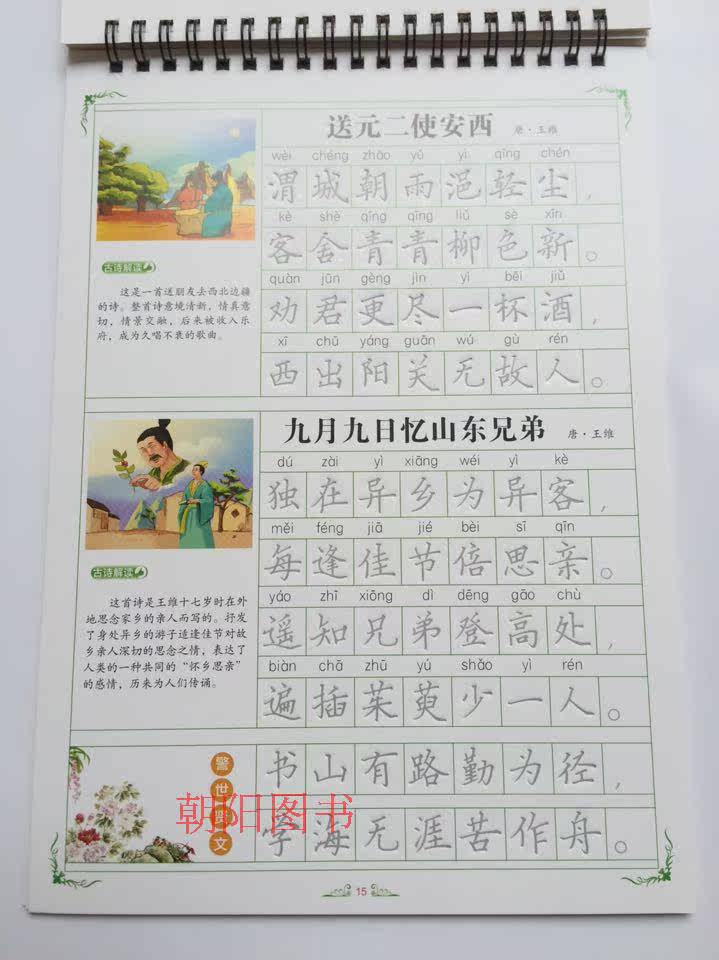 送元二使安西 唐·王维
wèi chéng zhāo yǔ yì qīng chén
渭城朝雨浥轻尘，
kè shè qīng qīng liǔ sè xīn
客舍青青柳色新。
quàn jūn gèng jìn yì bēi jiǔ
劝君更尽一杯酒，
xī chū yáng guān wú gù rén
西出阳关无故人。
古诗解读
这是一首送朋友去西北边疆
的诗。整首诗意境清新，情真意
切，情景交融，后来被收入乐
府，成为久唱不衰的歌曲。
九月九日忆山东兄弟 唐·王维
dú zài yì xiāng wéi yì kè
独在异乡为异客，
měi féng jiā jié bèi sī qīn
每逢佳节倍思亲。
yáo zhī xiōng dì dēng gāo chù
遥知兄弟登高处，
biàn chā zhū yú shǎo yì rén
遍插茱萸少一人。
古诗解读
这首诗是王维十七岁时在外
地思念家乡的亲人而写的。抒发
了身处异乡的游子适逢佳节对故
乡亲人深切的思念之情，表达了
人类的一种共同的“怀乡思亲”
的感情，历来为人们传诵。
警世 文
书山有路勤为径，
学海无涯苦作舟。
朝阳图书
15